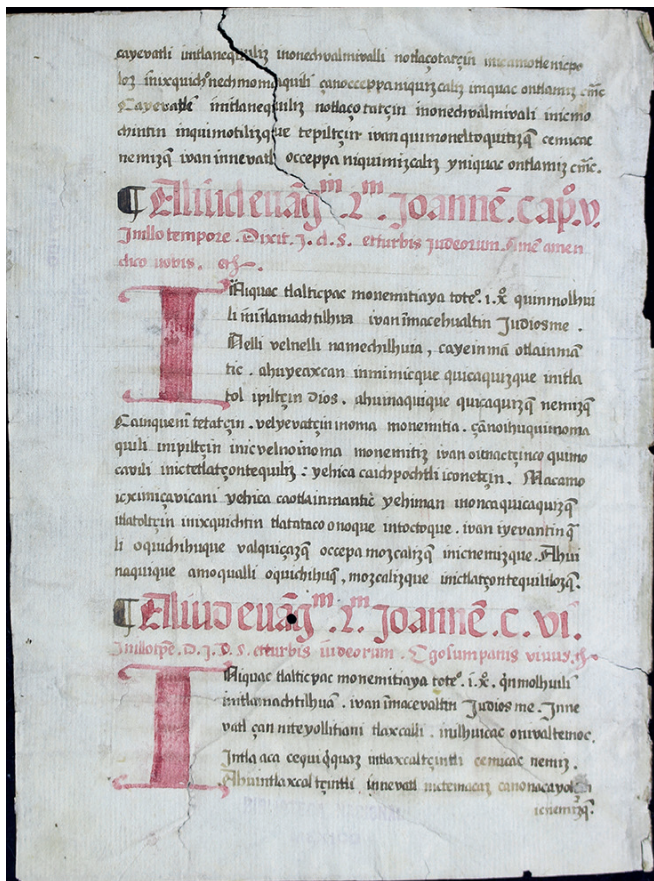 cayevatli intlanequiliz inonechvalmivalli notlaçotatçin inicamotlenicpo
loz inixquichꝰ nechmomaquili çanocceppa niquizcaliz iniquac ontlamiz cmc̄
Cayevatli initlanequiliz notlaçotatçin inonechvalmivali inicmo
chintin inquimotilizque tepiltçin ivan quimoneltoquitizq̄ cemicac
nemizq̄ ivan innevatl occeppa niquimizcaliz yniquac ontlamiz cmc̄.
¶ Aliud euāgᵐ. s. Joannē. cap̊. v.
Inillo tempore. Dixit. J. d. s. et turbis judeorum. amē amen
dico vobis. etc.
Iniquac tlalticpac monemitiaya toteᵒ. i. x̄ quinmolhui
li initlamachtilhua ivan īmacehualtin Judiosme.
Nelli velnelli namechilhuia, cayeinmā otlainman
tic. ahuyeaxcan inmimicque quicaquizque initla
tol ipiltçin Dios. ahuinaquique quicaquizq̄ nemizq̄
Cainquenī tetatçin. velyevatçin inoma monemitia. çānoihuqui inoma
quili inipiltçin inicvelnoinoma monemitiz ivan oitnaetçinco quimo
cavili inictetlatçontequiliz: yehica caichpochtli iconetçin. Macamo
icximiçavicani yehica caotlainmantic yehiman inoncaquicaquizq̄
itlatoltçin inixquichtin tlatataco onoque intoctoque. ivan iyevantin q̄
li oquichihuque valquiçazq̄ occepa mozcalizq̄ inicnemizque. Ahui
naquique amoqualli oquichihuq̄, mozcalizque inictlatçontequililozq̄.
¶ Aliud euāgᵐ. s. Joannē. c. vi.
Inillotp̄e. D. J. D. S. et turbis iudeorum. Ego sum panis vivus. etc.
Iniquac tlalticpac monemitiaya toteᵒ. i. x̄. q̄nmolhuili
initlamachtilhuā. ivan īmacevaltin Judiosme. Inne
vatl çan niteyollitiani tlaxcalli. inilhuicac onivaltemoc.
Intla aca cequiq̄quaz intlaxcaltçintli cemicac nemiz.
Ahuintlaxcaltçintli innevatl nictemacaz canonacayotçin
icnemizq̄.